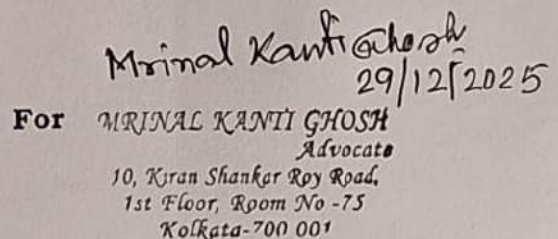 Mrinal Kanti Ghosh
29/12/2025
For MRINAL KANTI GHOSH
Advocate
10, Kiran Shanker Roy Road,
1st Floor, Room No -75
Kolkata-700 001